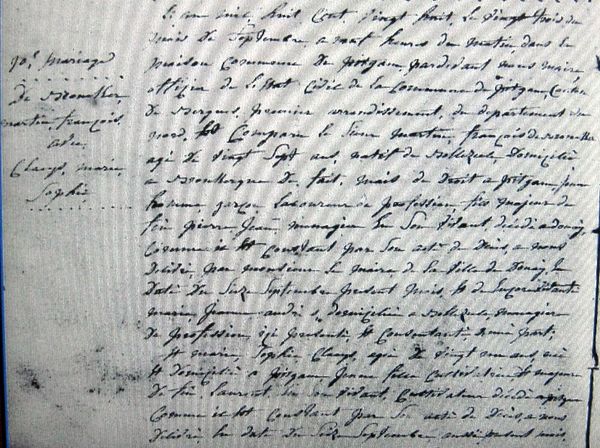 L'an mil huit cent vingt huit, le vingt trois du
mois de Septembre, a neuf heures du matin dans la
maison Commune de pitgam, pardevant nous maire
officier de l'Etat Civil de la Commune de pitgam, Canton
de Bergues, premier arrondissement, du departement du
nord, est Comparu le Sieur martin, françois
agé de vingt Sept ans, natif de Bollezele Domicilié
a de fait, mais de Droit a pitgam, jeune
homme garçon Laboureur de profession fils majeur de
feu pierre Jean, menager En Son vivant, décédé a
Comme il est Constant par Son acte de Décès, a nous
Délivré, par monsieur Le maire de la ville de
Daté Du Septembre present mois, et de
marie, Jeanne, domiciliée a Bollezele menagere
De profession, ici presente, et Consentante, D'une part,
Et marie, Sophie Clays, agée de vingt ans, née
et Domiciliée a pitgam Jeune fille Cultivatrice, et majeure
De feu Laurent, En Son vivant, Cultivateur décédé a pitgam
Comme il est Constant par Son acte de Décès, a nous
Délivré, En date du Septembre mois
mariage
De
martin, françois,
avec
Clays, marie,
Sophie